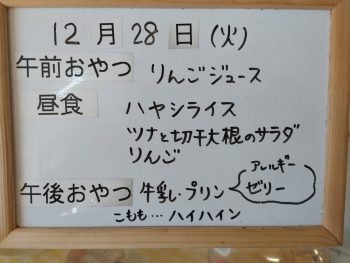 12月28日(火)
午前おやつ りんごジュース
昼食 ハヤシライス
ツナと切干大根のサラダ
りんご
午後おやつ 牛乳・プリン
アレルギー
ゼリー
こもも…ハイハイン